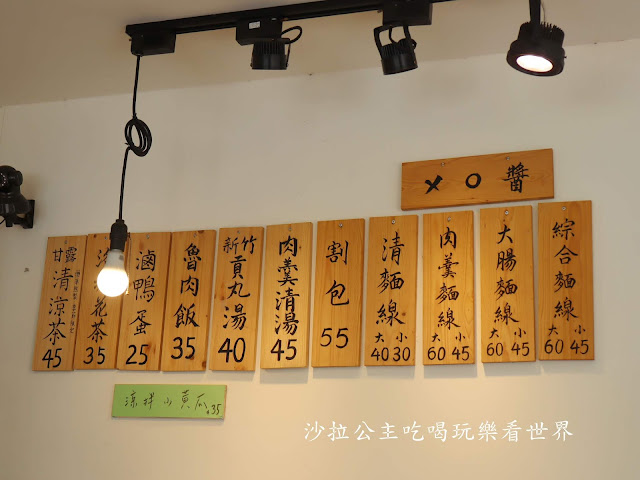 XO醬
綜合麵線 大60 小45
大腸麵線 大60 小45
肉羹麵線 大60 小45
清麵線 大40 小30
割包 55
肉羹清湯 45
新竹貢丸湯 40
魯肉飯 35
滷鴨蛋 25
花茶 35
甘露清涼茶 45
涼拌小黃瓜 35
沙拉公主吃喝玩樂看世界